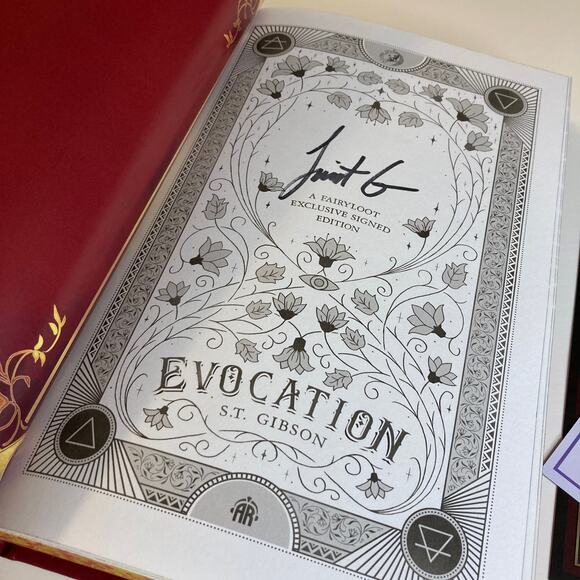 A FAIRYLOOT
EXCLUSIVE SIGNED
EDITION
EVOCATION
S.T. GIBSON
AR